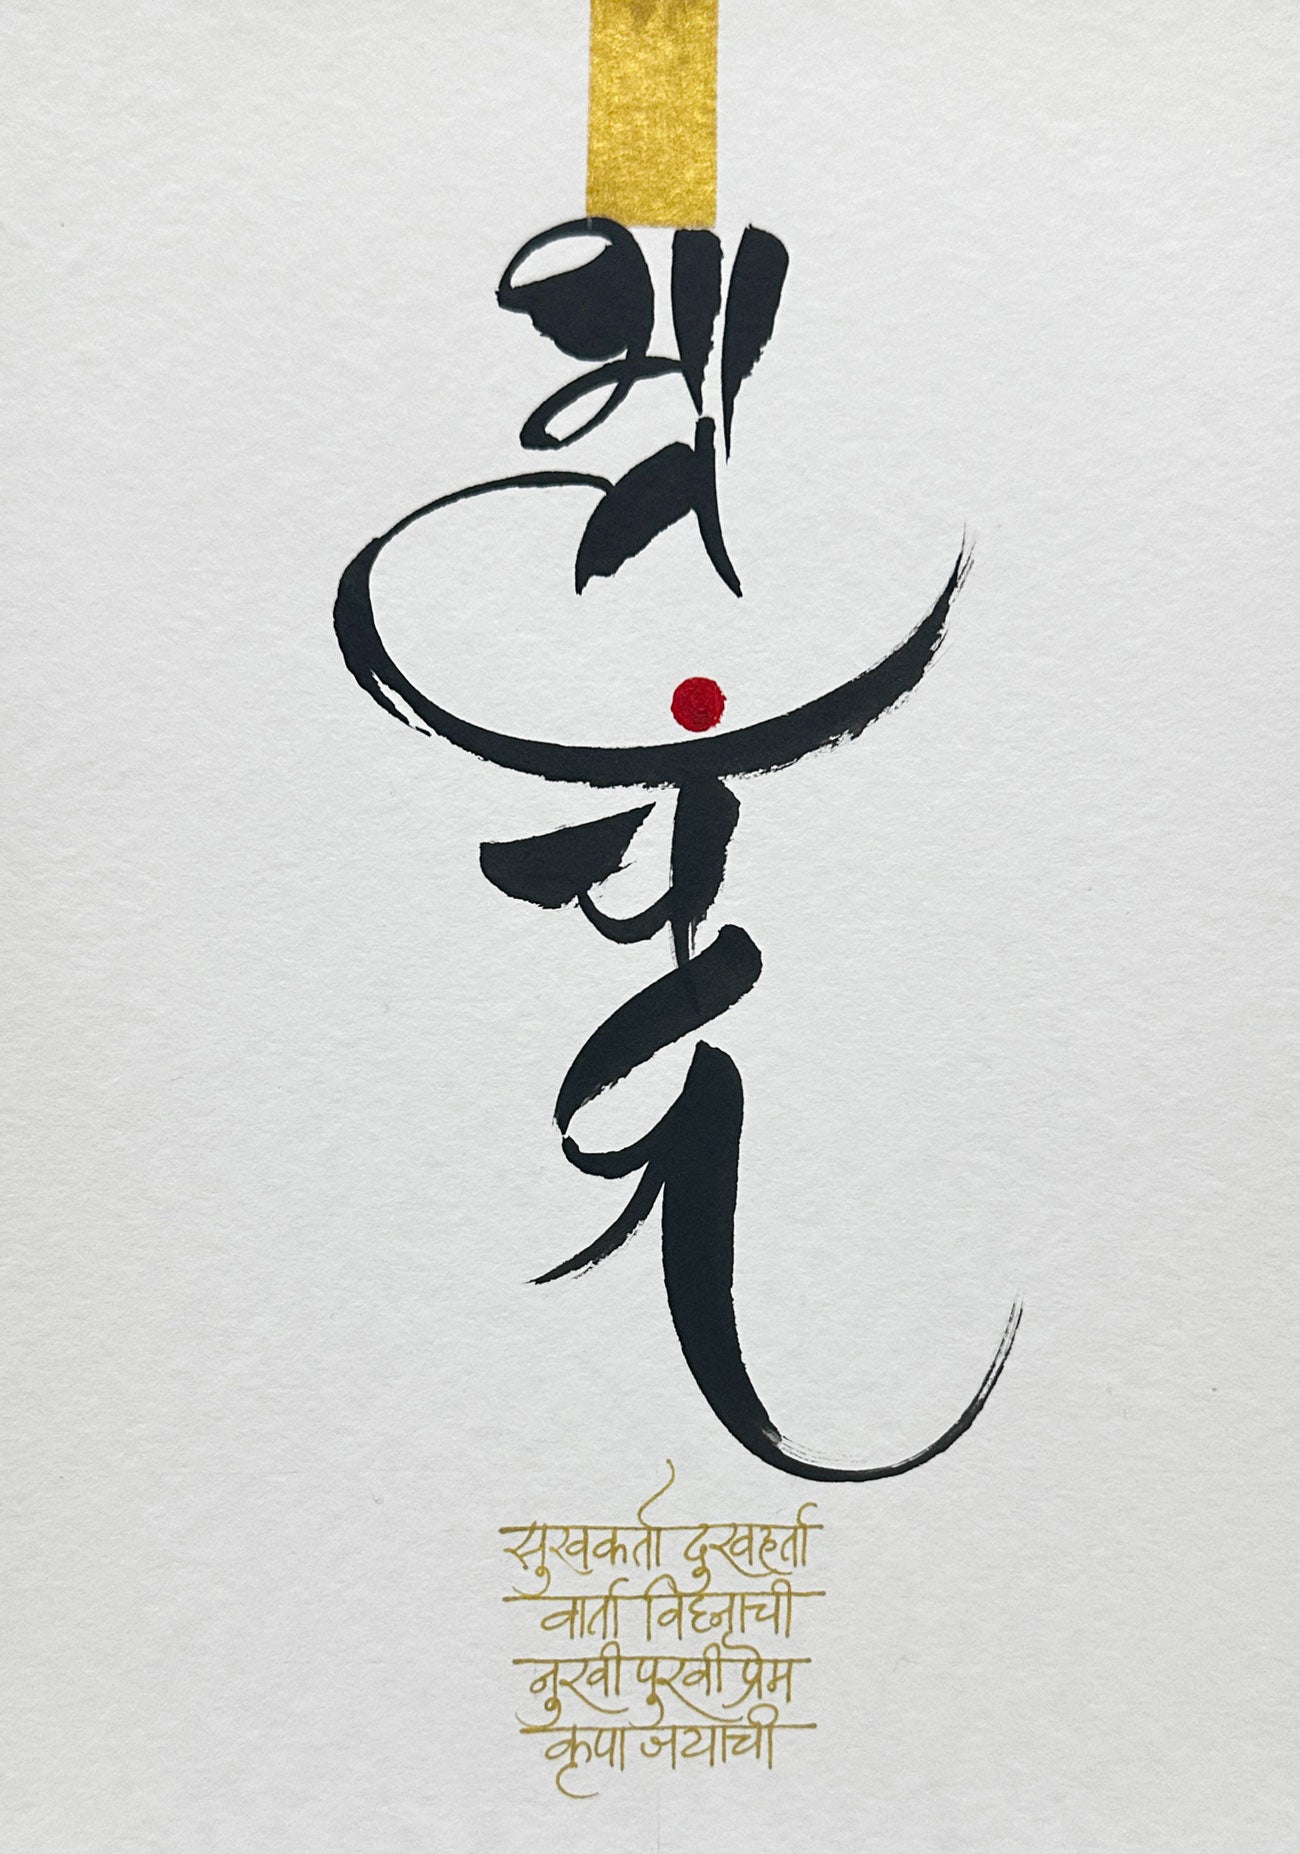 भालचंद्र
सुखकर्ता दुखहर्ता
वार्ता विघ्नाची
नुरवी पुरवी प्रेम
कृपा जयाची